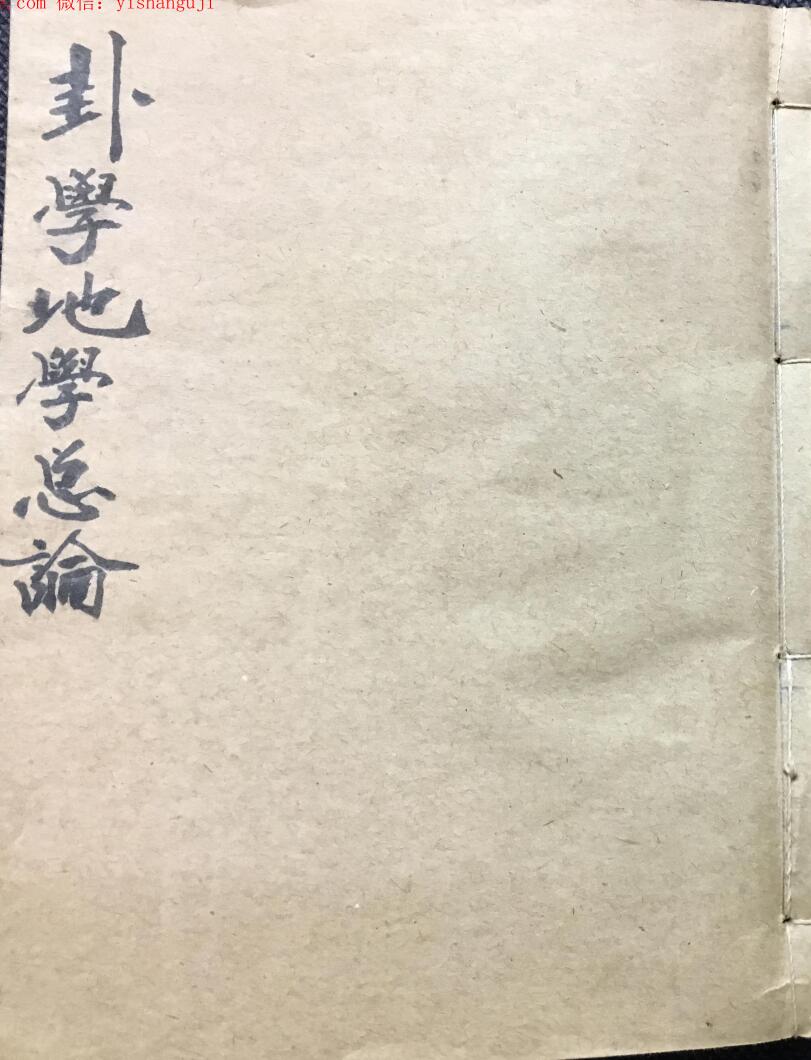 com 微信：yishanguji
卦學地學总論